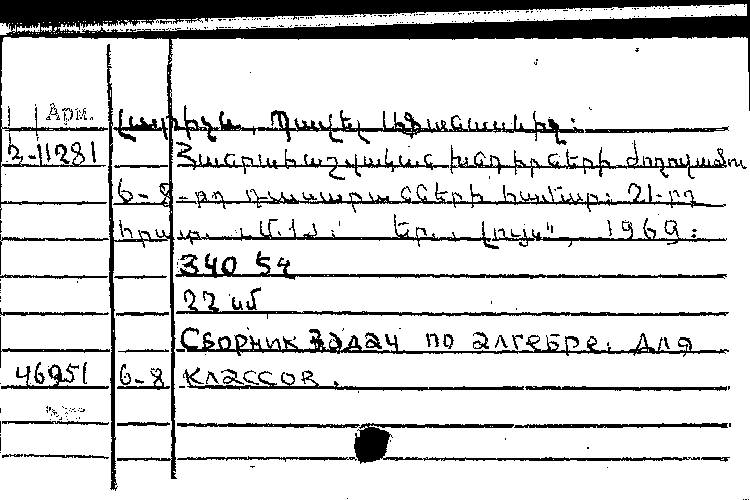 Арм.
Լարիչև, Պավել Աֆանասևիչ:
З-11281 Հանրահաշվական խնդիրների ժողովածու
6-8-րդ դասարանների համար: 21-րդ
հրատ. Եր., „Լույս", 1969:
340 էջ
22 սմ
Сборник задач по алгебре. Для
46951 6-8 классов.